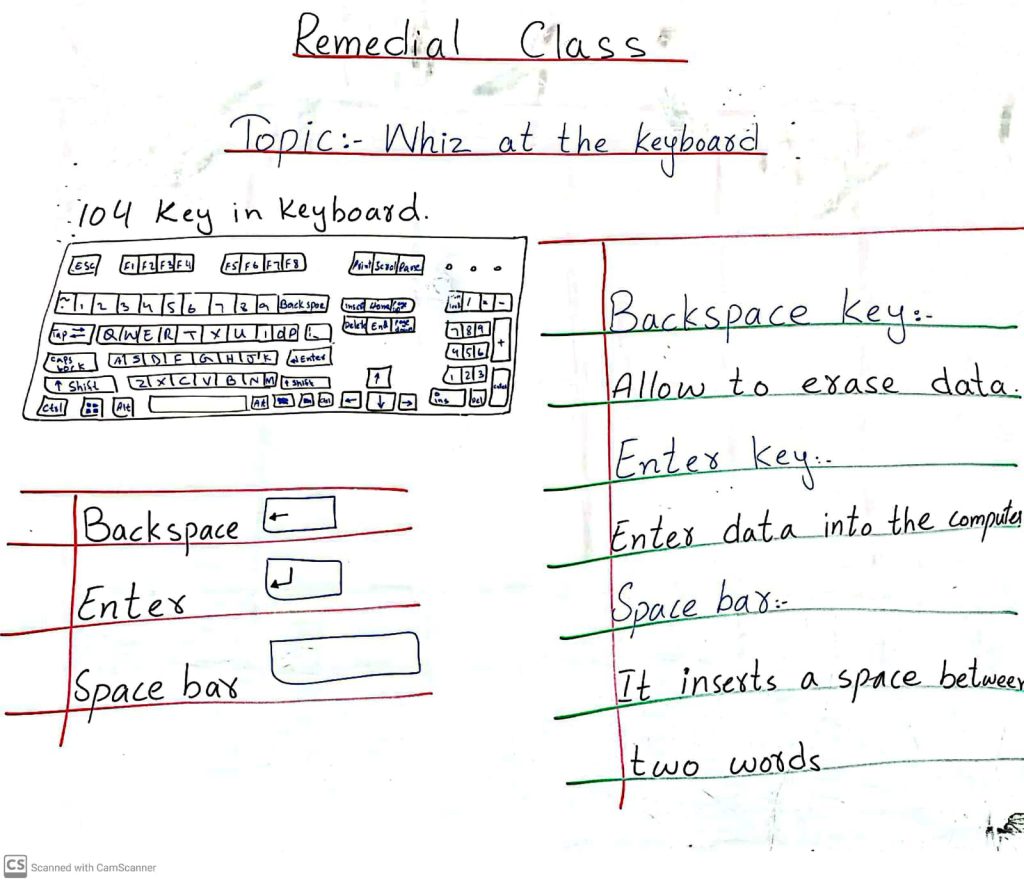 Remedial Class
Topic:- Whiz at the keyboard
104 Key in Keyboard.
ESC F1 F2 F3 F4 F5 F6 F7 F8 Print Scrol Pause
~ 1 2 3 4 5 6 7 8 9 Back space Insert Home
Tap Q W E R T X U I O P
Delete End
7 8 9 +
Caps Lock A S D F G H J K Enter
4 5 6
↑ Shift Z X C V B N M ↑ Shift ↑
1 2 3
Ctrl Alt Alt Ctrl ← ↓ → 0 ins Del
Backspace ←
Enter ↵
Space bar
Backspace key:-
Allow to erase data.
Enter key:-
Enter data into the computer
Space bar:-
It inserts a space between
two words
CS Scanned with CamScanner